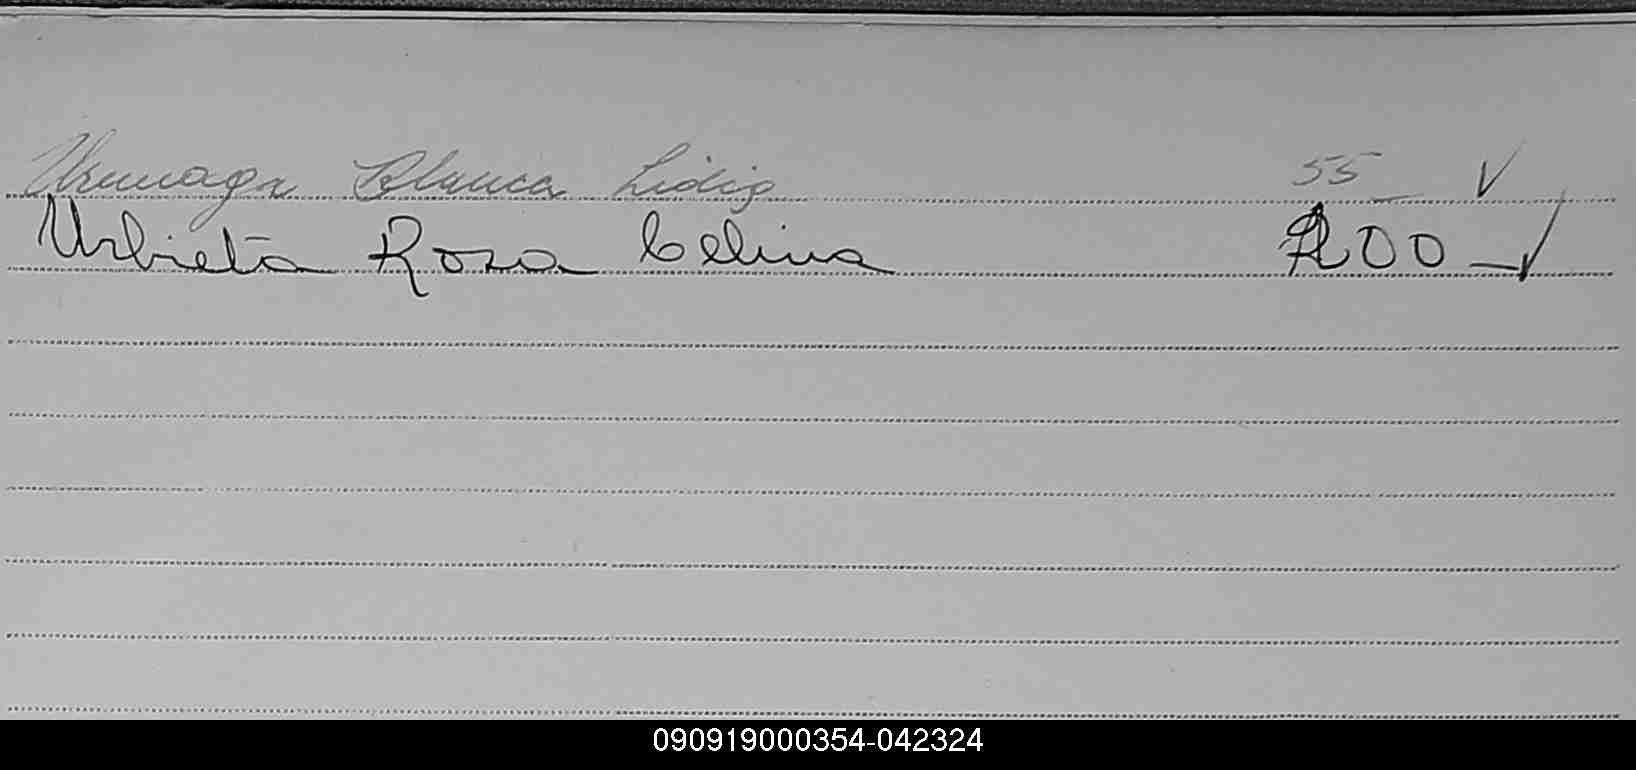 Urunaga Blanca Lidia 55 _ √
Urbieta Rosa Celina 200 _ √
090919000354-042324